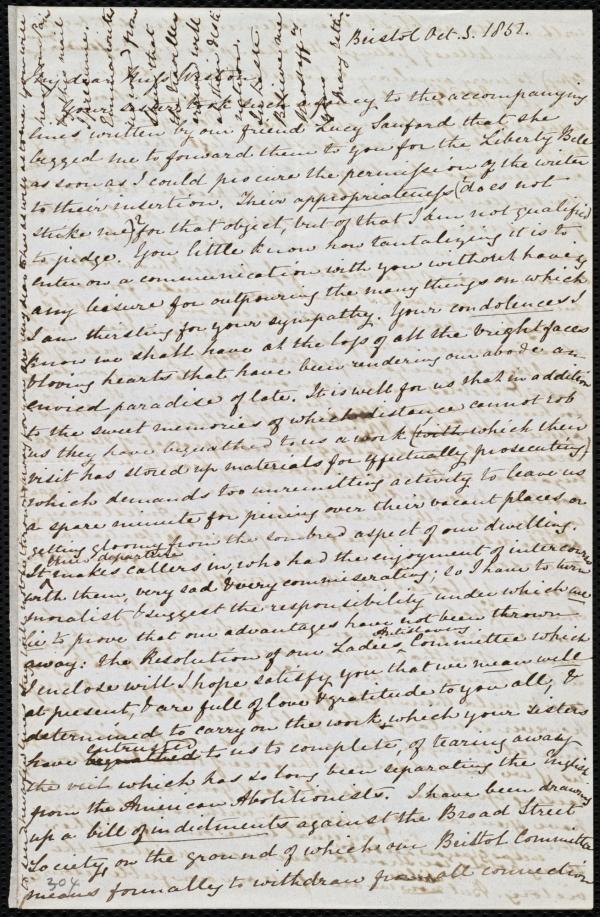 Bristol Oct. 3. 1851.
My dear Miss Weston
Your sister took such a fancy to the accompanying
lines written by our friend Lucy Sanford that she
begged me to forward them to you for the Liberty Bell
as soon as I could procure the permission of the writer
to their insertion. Their appropriateness (does not
strike me)? for that object, but of that I am not qualified
to judge. You little know how tantalizing it is to
enter on a communication with you without having
any leisure for outpouring the many things on which
I am thirsting for your sympathy. Your condolences I
know we shall have at the loss of all the bright faces
& loving hearts that have been rendering our abode an
envied paradise of late. It is well for us that in addition
to the sweet memories of which distance cannot rob
us they have bequeathed to us a work (with which their
visit has stored up materials for effectually prosecuting)
which demands too unremitting activity to leave us
a spare minute for pining over their vacant places or
getting gloomy from the sombred aspect of our dwelling.
their departure
It makes callers in, who had the enjoyment of intercourse
with them, very sad & very commiserating; so I have to turn
moralist & suggest the responsibility under which we
lie to prove that our advantages have not been thrown
Antislavery
away: the Resolution of our Ladies Committee which
I enclose will I hope satisfy you that we mean well
at present, & are full of love & gratitude to you all, &
determined to carry on the work which your sisters
entrusted
have bequeathed to us to complete, of tearing away
the veil which has so long been separating the English
from the American Abolitionists. I have been drawing
up a bill of indictments against the Broad Street
Society, on the ground of which our Bristol Committee
means formally to withdraw from all connection
304